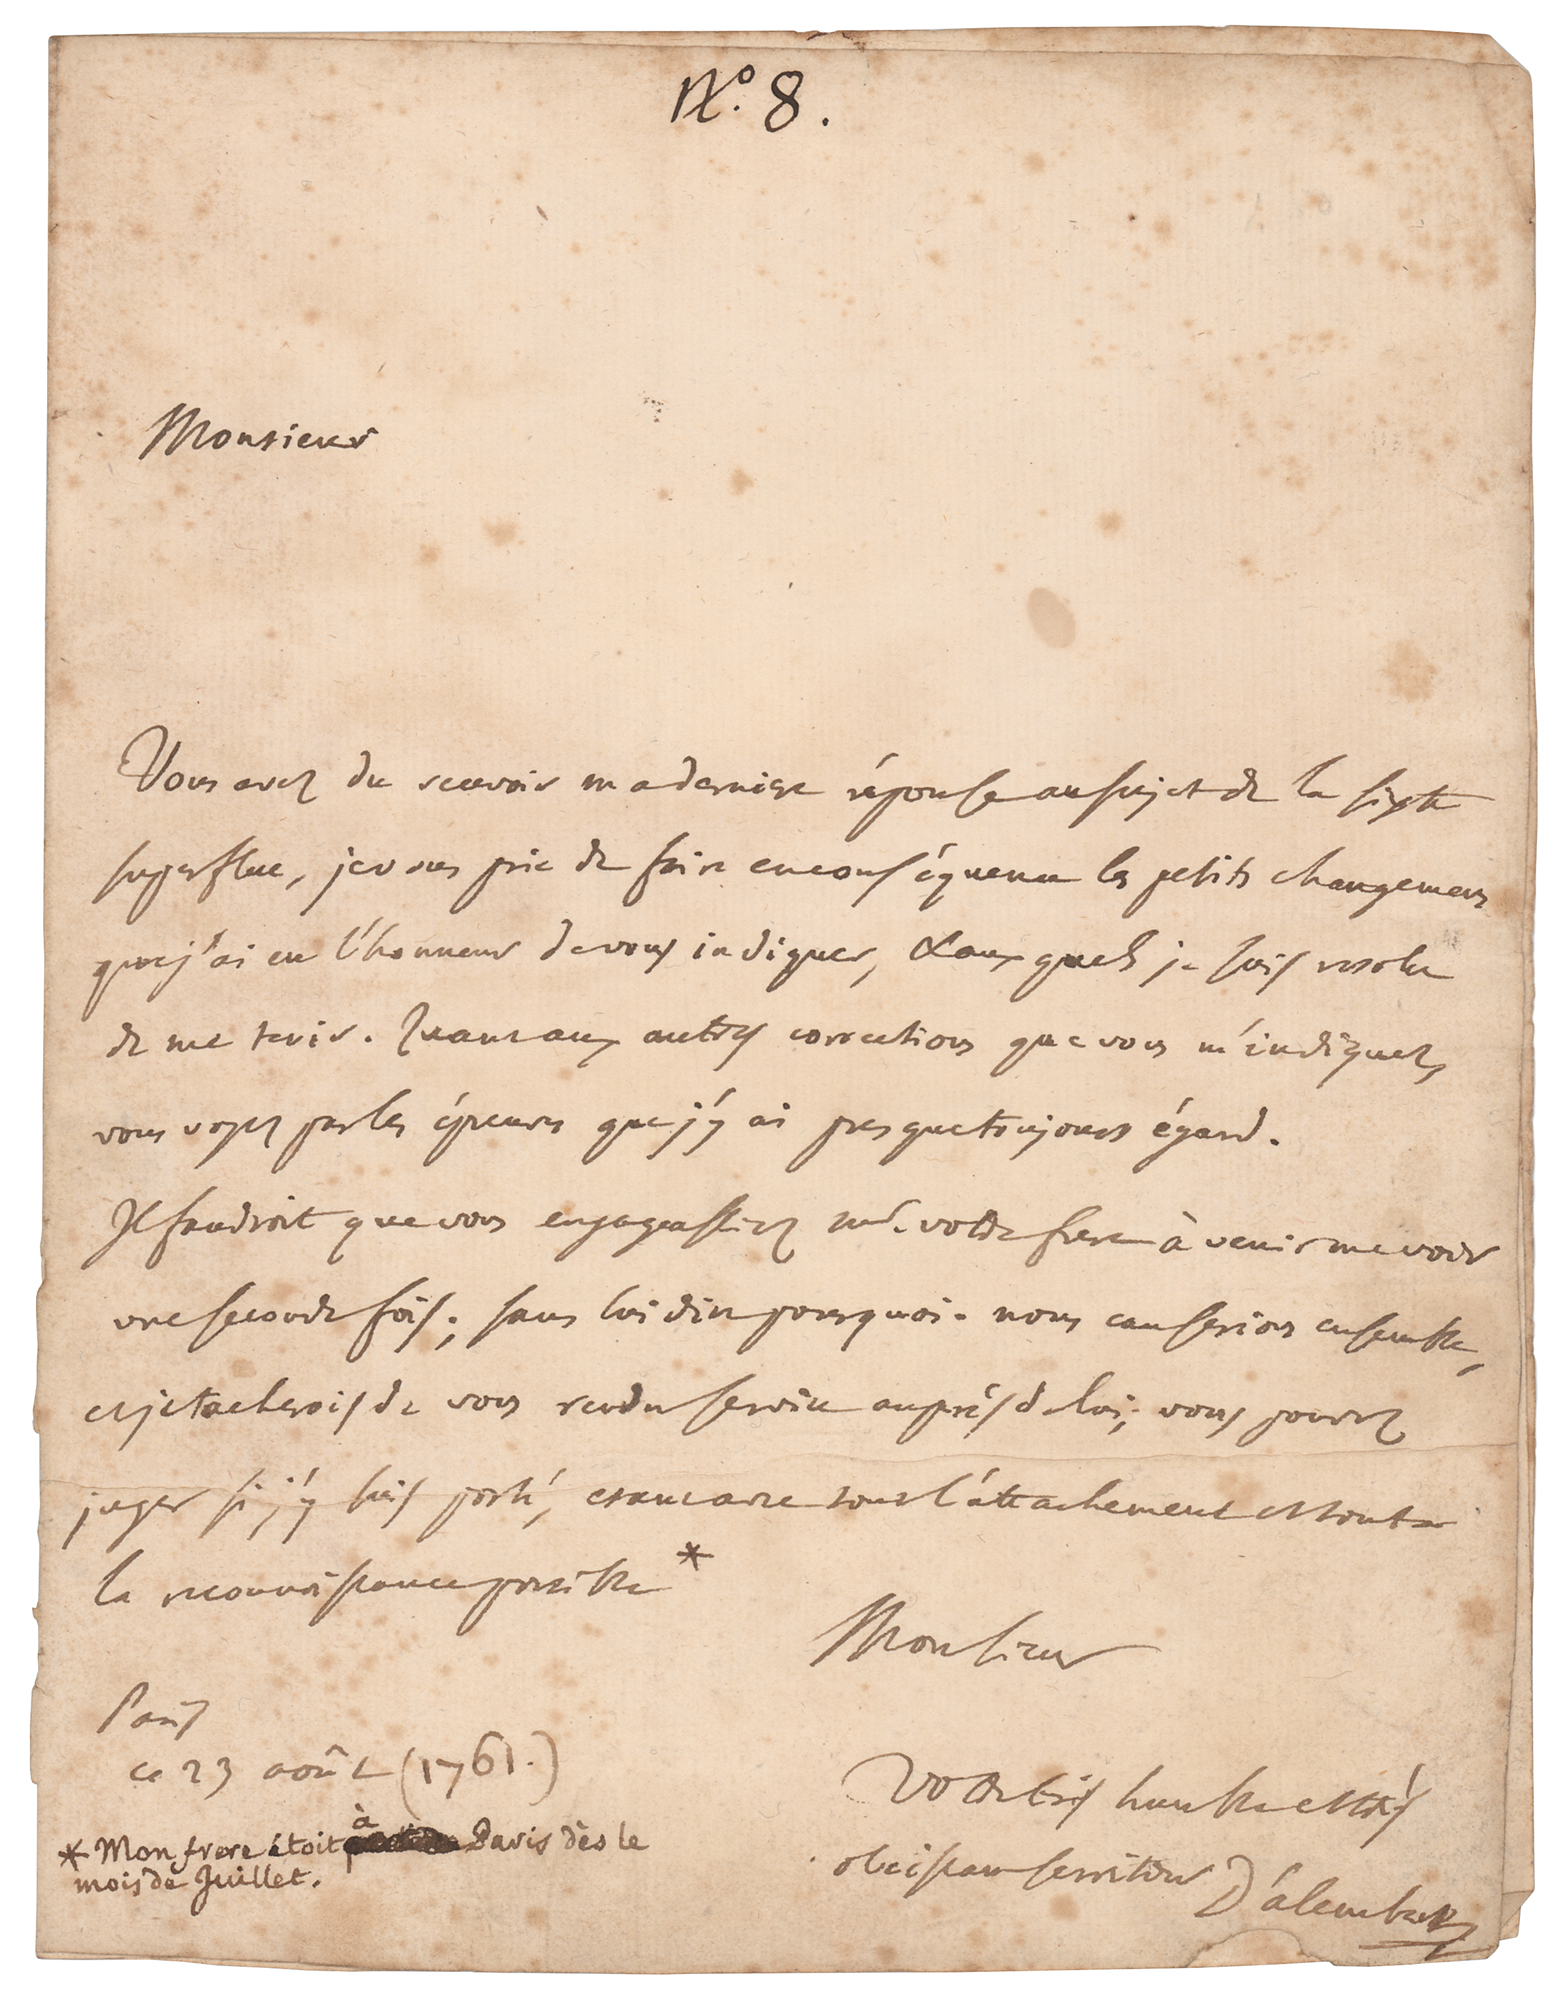 N.° 8.
Monsieur
Vous avez du recevoir ma derniere réponse au sujet de la sixte
superflue, je vous prie de faire en conséquence les petits changemens
que j'ai eu l'honneur de vous indiquer, & auxquels je suis resolu
de me tenir. Quant aux autres corrections que vous m'indiquez,
vous voyez par les épreuves que j'y ai presque toujours égard.
Il faudroit que vous engageassiez mr. votre frere à venir me voir
une seconde fois; sans lui dire pourquoi. nous causerions ensemble,
et je tacherois de vous rendre service auprès de lui; vous pouvez
juger si j'y suis porté, étant avec tout l'attachement et toute
la reconnoissance possible *
Monsieur
Paris
ce 23 août (1761.)
Votre très humble et très
obeissant serviteur D'alembert
* Mon frere étoit à Paris dès le
mois de Juillet.